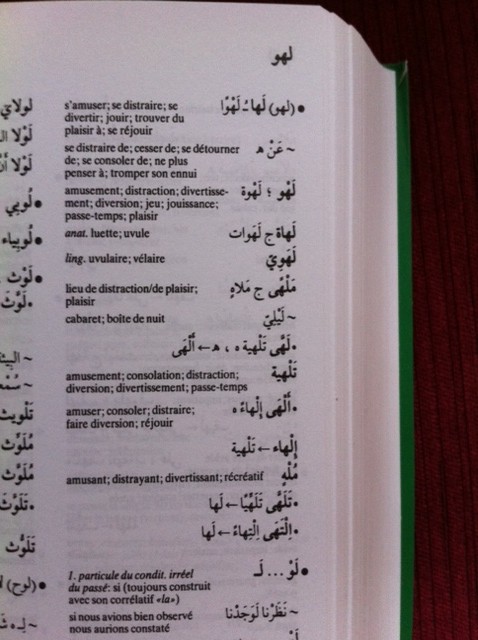 لهو
• (لهو) لَهَا ـُ لَهْوًا s'amuser; se distraire; se
divertir; jouir; trouver du
plaisir à; se réjouir
~ عَنْ ه se distraire de; cesser de; se détourner
de; se consoler de; ne plus
penser à; tromper son ennui
لَهْو ؛ لَهْوة amusement; distraction; divertisse-
ment; diversion; jeu; jouissance;
passe-temps; plaisir
لَهاة ج لَهَوات anat. luette; uvule
لَهَوِيّ ling. uvulaire; vélaire
مَلْهًى ج مَلاهٍ lieu de distraction/de plaisir;
plaisir
~ لَيْلِيّ cabaret; boîte de nuit
• لَهَّى تَلْهِية ه ، ه ← أَلْهَى
تَلْهِية amusement; consolation; distraction;
diversion; divertissement; passe-temps
• أَلْهَى إِلْهاءً ه amuser; consoler; distraire;
faire diversion; réjouir
إِلْهاء ← تَلْهِية
مُلْهٍ amusant; distrayant; divertissant; récréatif
• تَلَهَّى تَلَهِّيًا ← لَها
• اِلْتَهَى اِلْتِهاءً ← لَها
• لَوْ... لَـ 1. particule du condit. irréel
du passé: si (toujours construit
avec son corrélatif «la»)
~ نَظَرْنا لَوَجَدْنا si nous avions bien observé
nous aurions constaté
لولاي
لَوْلا
لَوْلا
• لُوبي
• لُوبِياء
• لَوْث
• لَوَّثَ
~
~
تَلْويث
مُلَوِّث
مُلَوَّث
• تَلَوَّثَ
تَلَوُّث
• (لوح)
~